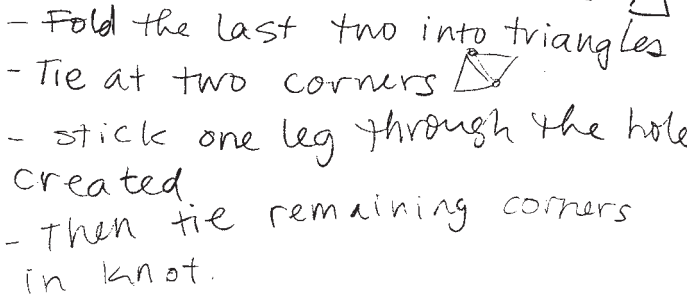 - Fold the last two into triangles
- Tie at two corners
- stick one leg through the hole
created
- Then tie remaining corners
in knot.